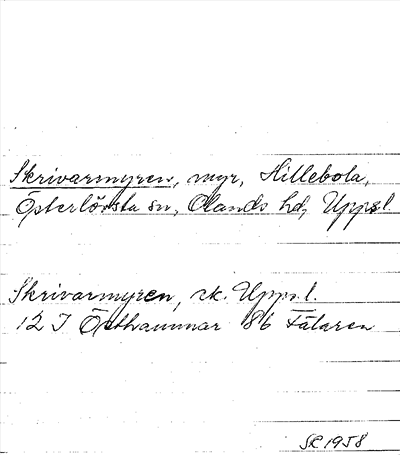 Skrivarmyren, myr, Hillebola,
Österlövsta sn, Olands hd, Uppsl.
Skrivarmyren, ek. Upps.l.
12 I Östhammar 8b Fälaren
SR 1958